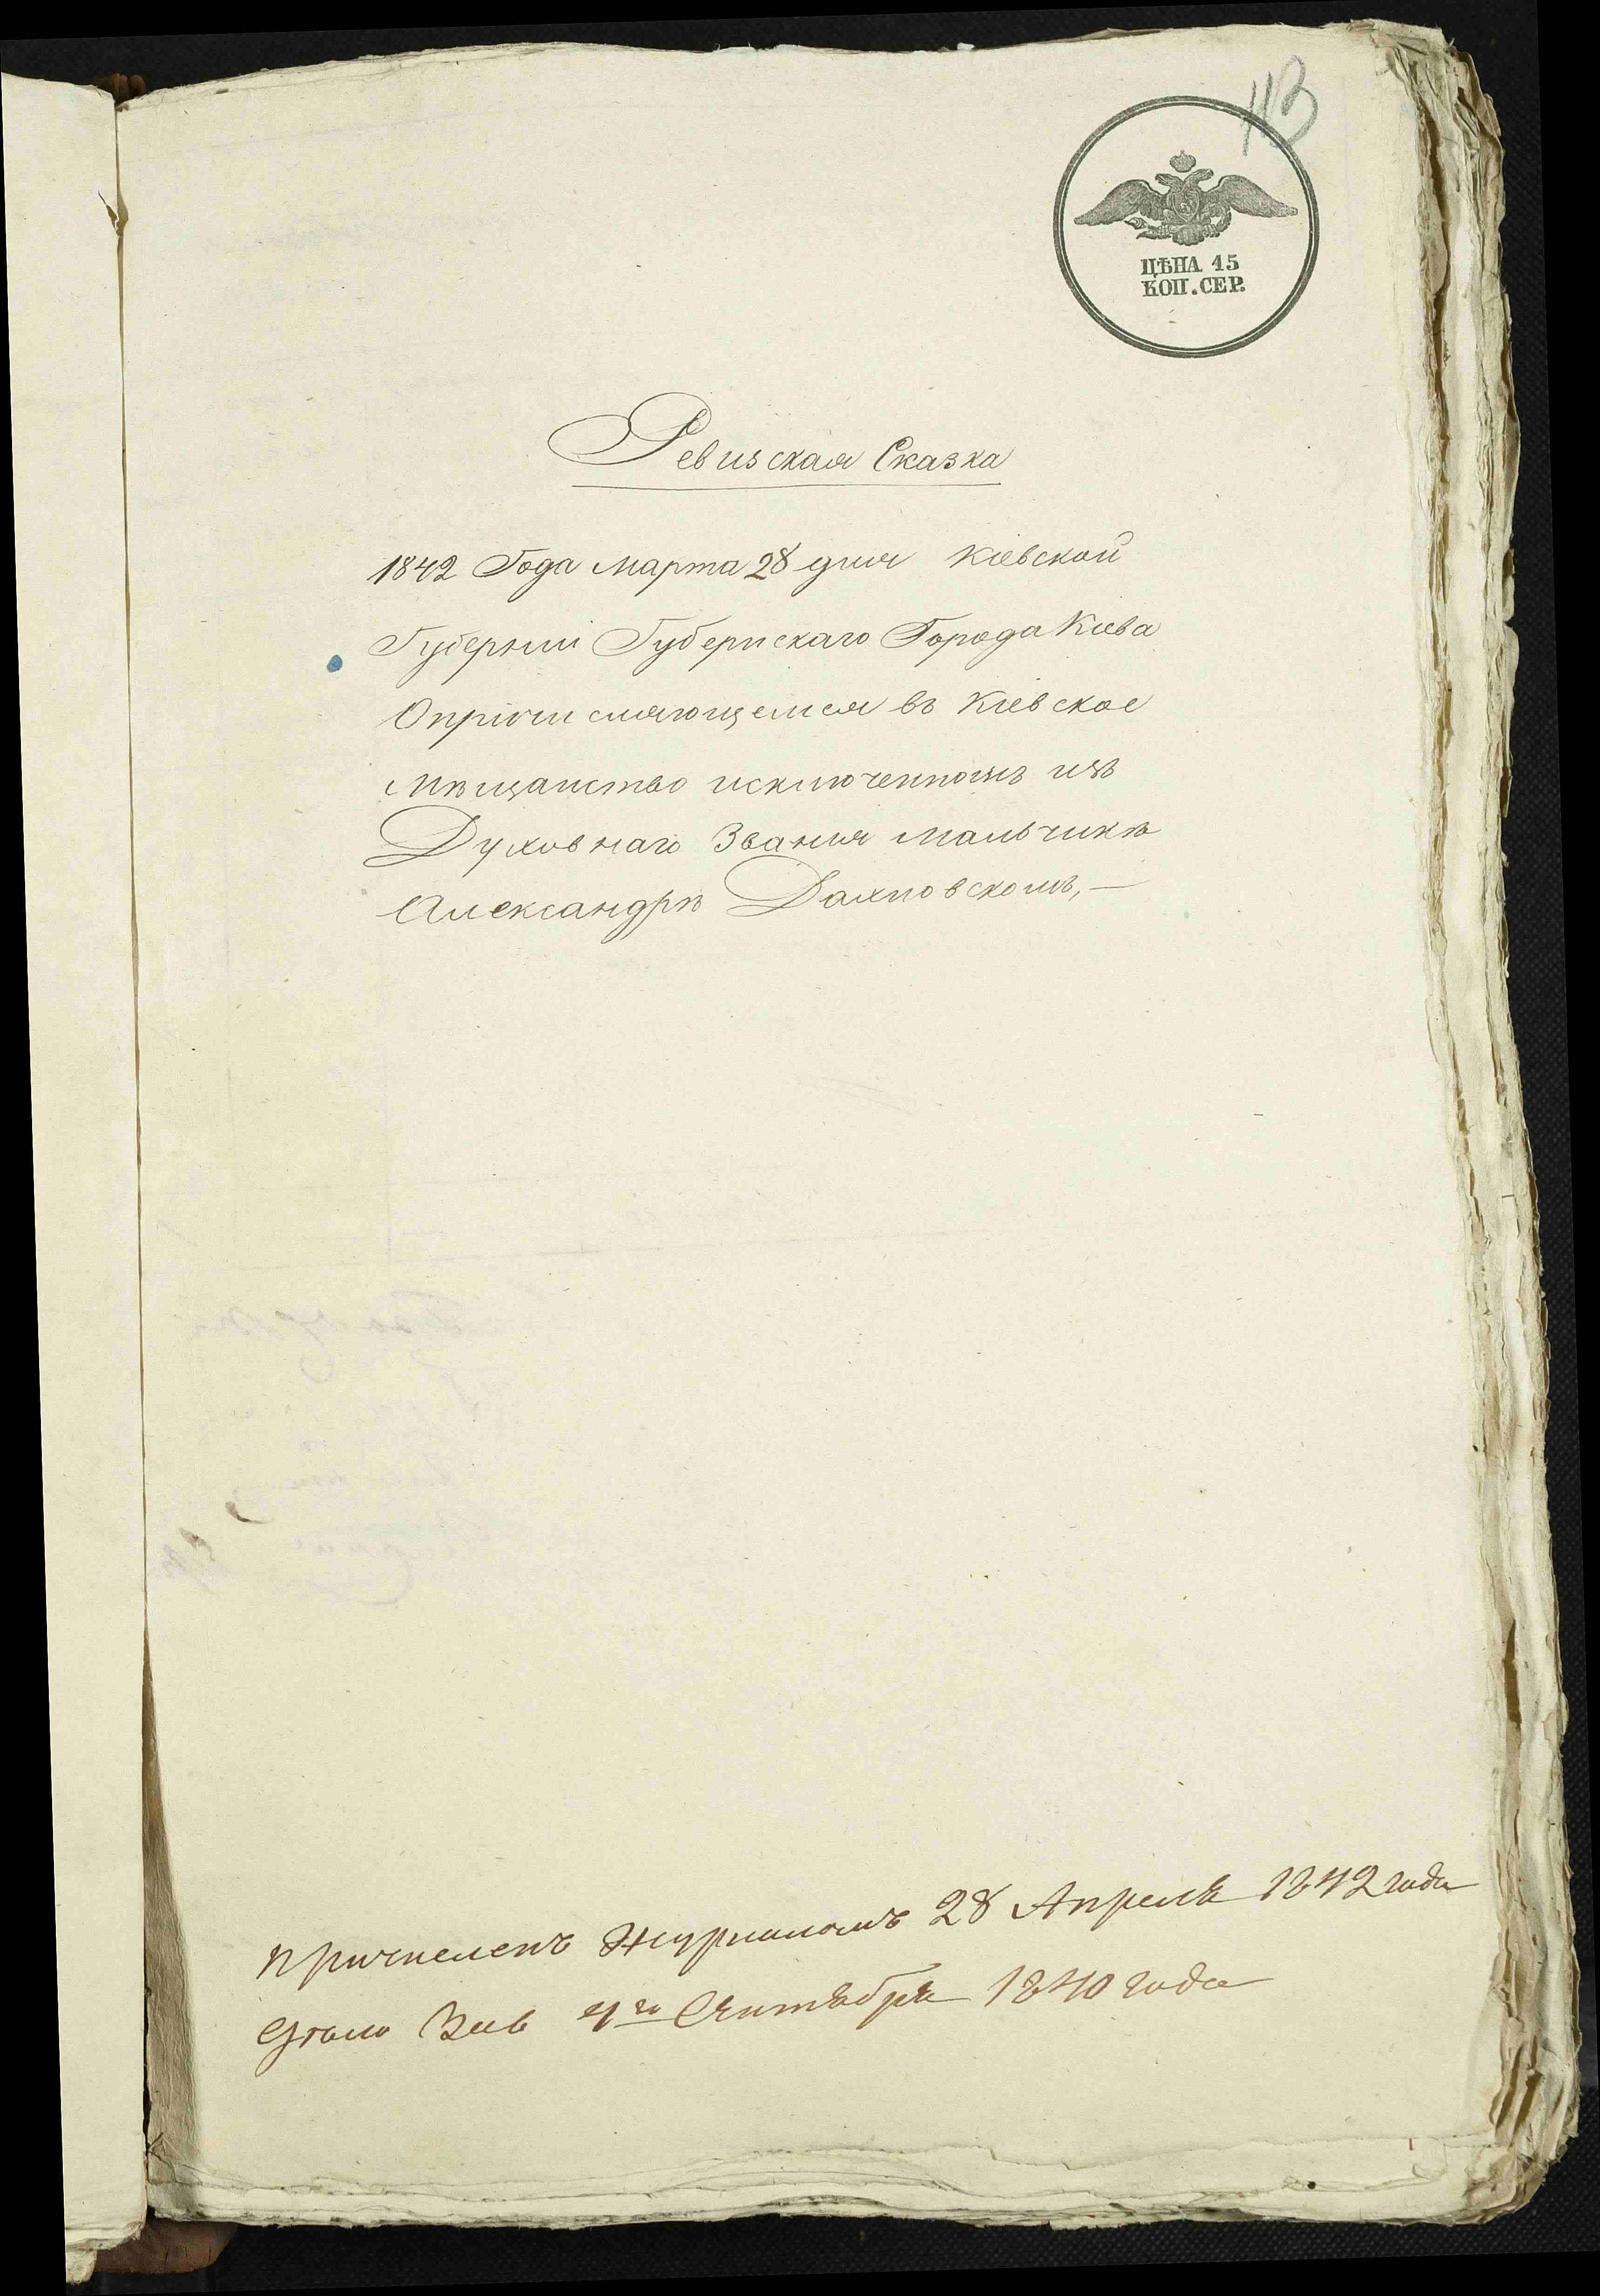 113
ЦѢНА 15
КОП. СЕР.
Ревизская Сказка
1842 Года марта 28 дня Кіевской
Губерніи Губернскаго Города Кіева
Опричисляющемся въ Кіевское
мѣщанство исключенномъ изъ
Духовнаго Званія мальчикѣ
Александрѣ Дахновскомъ, —
Причисленъ Журналомъ 28 Апреля 1842 года
1840 года